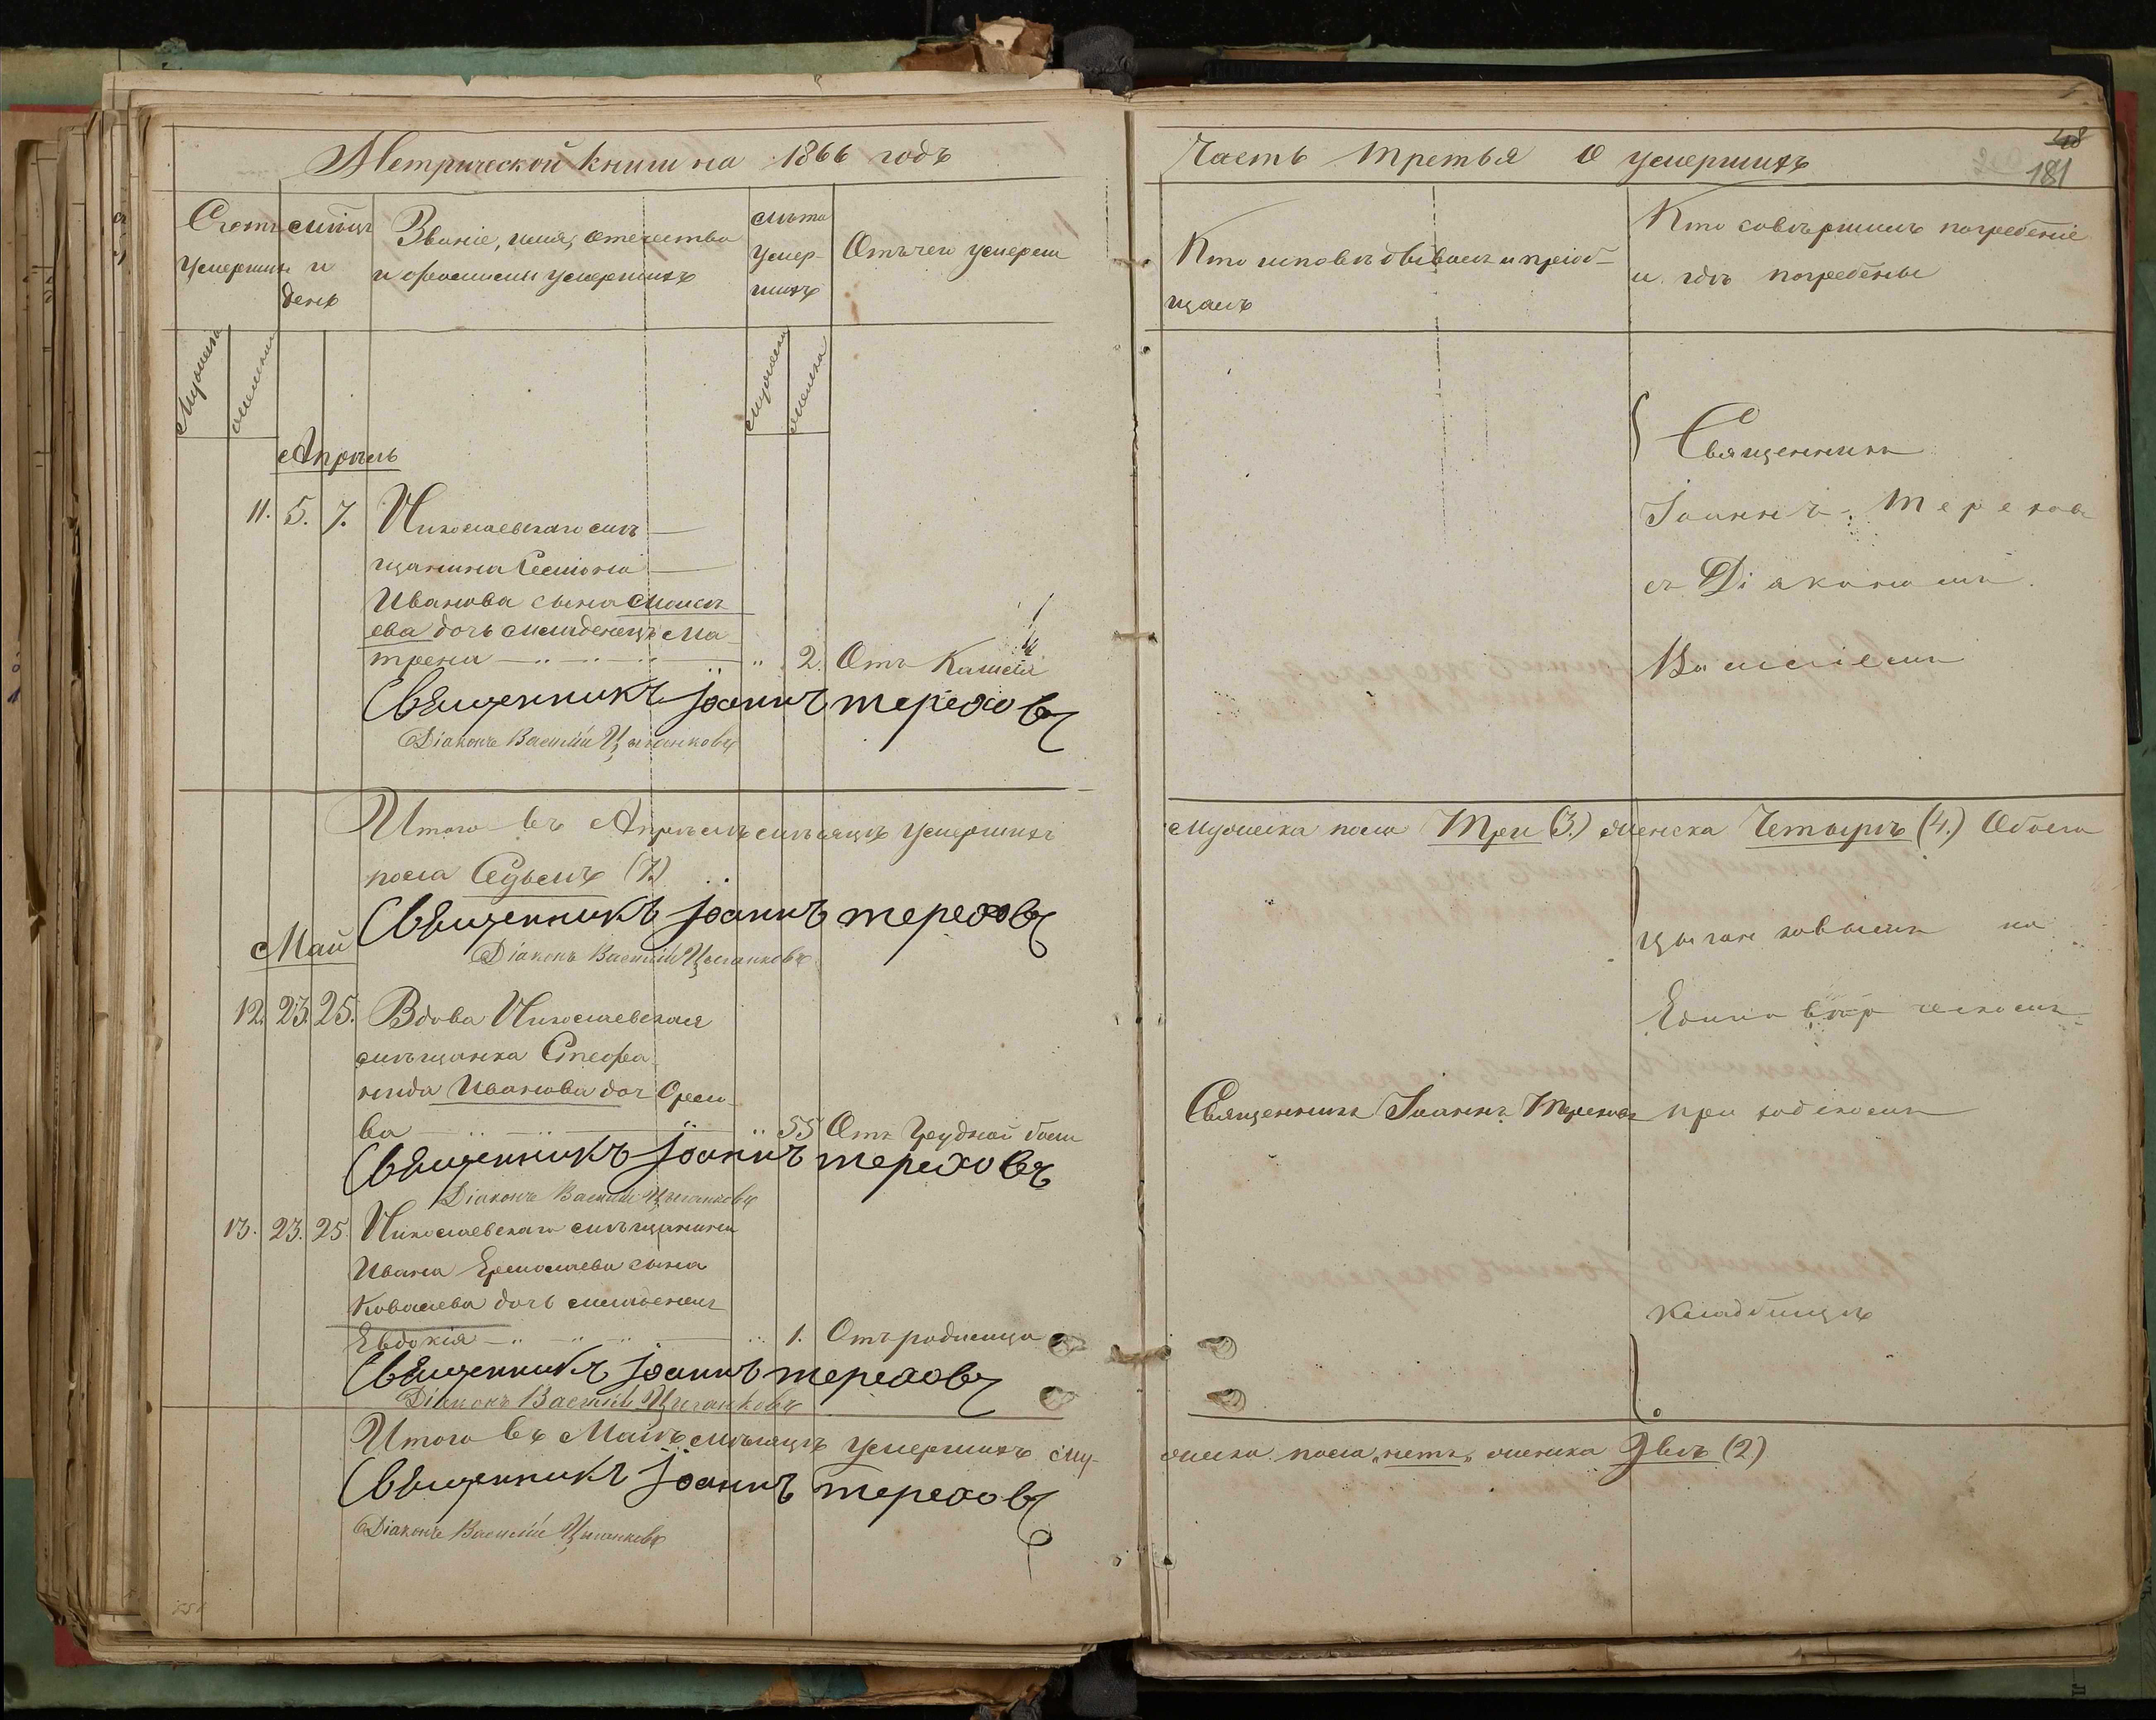 Метрической книги на 1866 годъ
Счетъ умершихъ
Мѣсяцъ и день
Званіе, имя, отечество
и фамилія умершихъ
Лѣта
умер-
шихъ
Отъ чего умерли
Мужеска
женска
Мужеска
женска
Апрѣль
11. 5. 7. Николаевскаго мѣ-
щанина Семіона
Иванова сына Моисе-
ева дочь младенецъ Ма-
трена " 2. Отъ Кашля
Священникъ Іоаннъ Тереховъ
Діаконъ Василій Цыганковъ
Итого въ Апрѣлѣ мѣсяцѣ умершихъ
пола Седьмъ (7.)
Священникъ Іоаннъ Тереховъ
Діаконъ Василій Цыганковъ
Май
12. 23. 25. Вдова Николаевская
мѣщанка Стефа-
нида Иванова доч Орло-
ва " 55 Отъ Грудной боли
Священникъ Іоаннъ Тереховъ
Діаконъ Василій Цыганковъ
13. 23. 25. Николаевскаго мѣщанина
Ивана Ермолаева сына
Ковалева дочь младенецъ
Евдокія " 1. Отъ родимца
Священникъ Іоаннъ Тереховъ
Діаконъ Василій Цыганковъ
Итого въ Маѣ мѣсяцѣ умершихъ му-
Священникъ Іоаннъ Тереховъ
Діаконъ Василій Цыганковъ
Часть третья О умершихъ
48
181
Кто исповѣдывалъ и пріоб-
щалъ
Кто совершилъ погребеніе
и гдѣ погребены
Священникъ
Іоаннъ Терехов
съ Діакономъ
Василіемъ
мужеска пола Три (3.) женска Четырѣ (4.) Обоего
Цыганковымъ на
Единовѣрческомъ
Священникъ Іоаннъ Тереховъ
приходскомъ
кладбищѣ
жеска пола "нетъ" женска Двѣ (2)